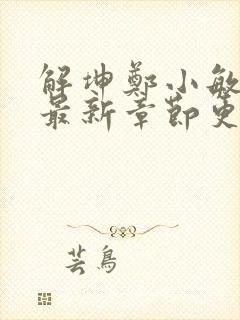 解坤鄭小敏
最新章節更
芸鳥